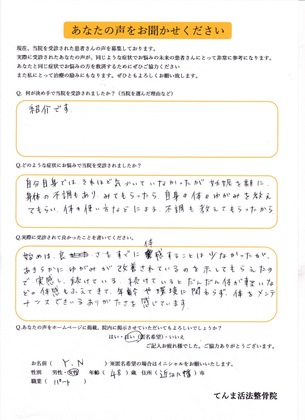 あなたの声をお聞かせください
現在、当院を受診された患者さんの声を募集しております。
実際に受診されたあなたの声が、同じような症状でお悩みの未来の患者さんにとって非常に参考になります。
あなたと同じ症状でお悩みの方を救済するためにぜひご協力ください
また私にとって治療の励みにもなります。ぜひともよろしくお願い致します。
Q. 何が決め手で当院を受診されましたか?(当院を選んだ理由など)
紹介です
Q.どのような症状にお悩みで当院を受診されましたか?
自分自身では、さほど気がついていなかったが 妊娠を期に、
身体の不調もあり みてもらったら、自身の体のゆがみを教え
てもらい、体の使い方などによる、不調も教えてもらったから
Q.実際に受診されて良かったことを書いてください。
始めは、良 さをすぐに 実感することは少なかったが、
あきらかにゆがみが改善されているのを示してもらえたの
で実感し、続けている。続けているとだんだん体が軽いな
どの体感もふえてきて、年齢や環境に関わらず、体をメンテ
ナンスできるありがたさを感じています。
Q.あなたの声をホームページに掲載、院内に掲示させていただいてもよろしいでしょうか?
はい・はい(匿名希望)・いいえ
ご記入お疲れ様でした。ご協力ありがとうございます。
お名前( Y.N )※匿名希望の場合はイニシャルをお願いいたします。
性別 男性・女性 年齢( 48 )歳 住所( )市
職業( パート )
てんま活法整骨院